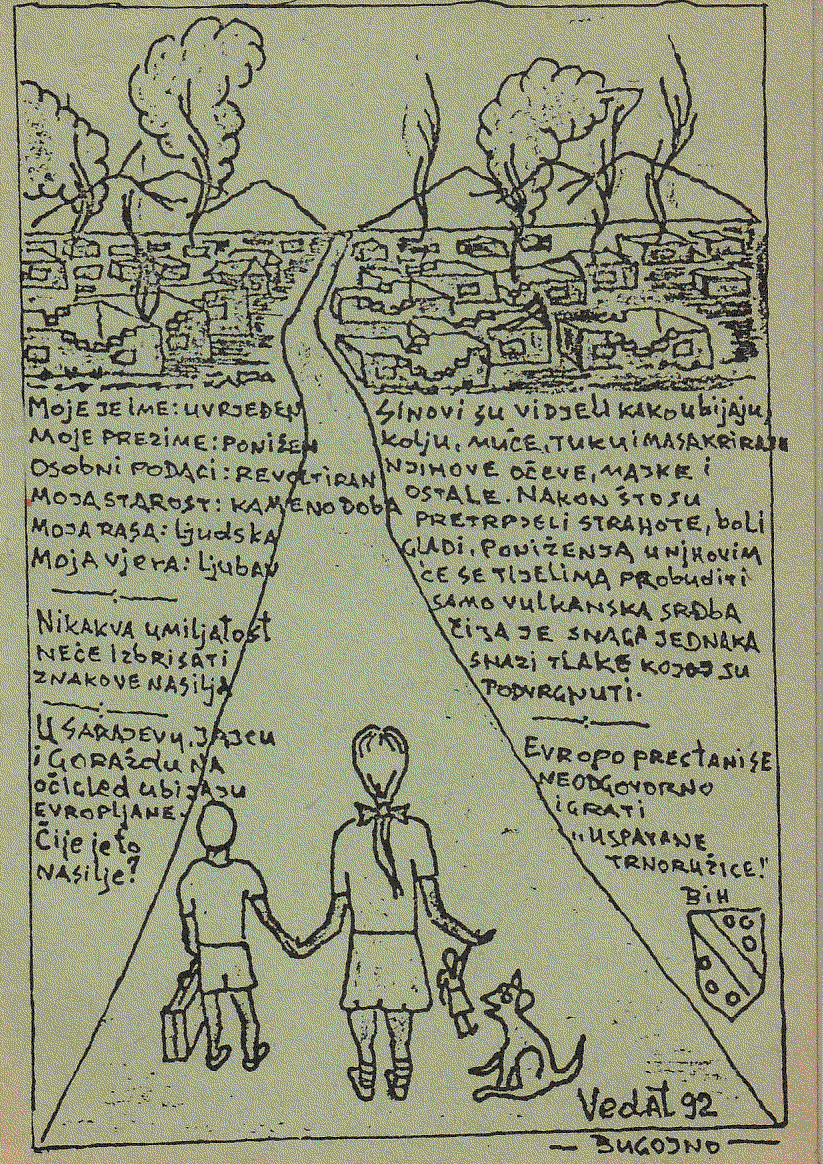 MOJE JE IME: UVRJEĐEN
MOJE PREZIME: PONIŽEN
OSOBNI PODACI: REVOLTIRAN
MOJA STAROST: KAMENO DOBA
MOJA RASA: ljudska
MOJA vjera: ljubav
NIKAKVA umiljatost
NEĆE IZbRISATI
ZNAKOVE NASilja
U SARAJEVu, JAJCu
i GORAŽdu NA
očigled ubijaju
EVROPljANE.
Čije je to
NASilje?
SINOVI su vidjeli kako ubijaju,
kolju, muče, tuku i MASAKRIRAJU
NJIHOVE OČEVE, MAJKE i
OSTALE. NAKON ŠTO SU
PRETRPJELI STRAHOTE, boli
GLADi, PONIŽENJA u njihovim
ĆE SE TIJELIMA PRobuditi
SAMO vulkANSKA SRdbA
ČIJA JE SNAGA JEDNAKA
SNAZI TLAKE KOJOJ SU
PODVRGNUTI.
EVROPO PRESTANI SE
NEODGOVORNO
iGRATI
„USPAVANE
TRNORUŽICE!"
BiH
Vedat 92
— BUGOJNO —